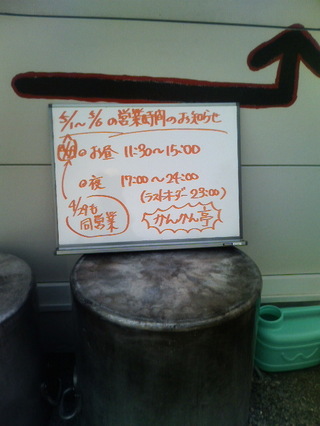 5/1〜5/6の営業時間のお知らせ
のお昼 11:30〜15:00
の夜 17:00〜24:00
(ラストオーダー23:00)
4/29も
同営業
かんかん亭